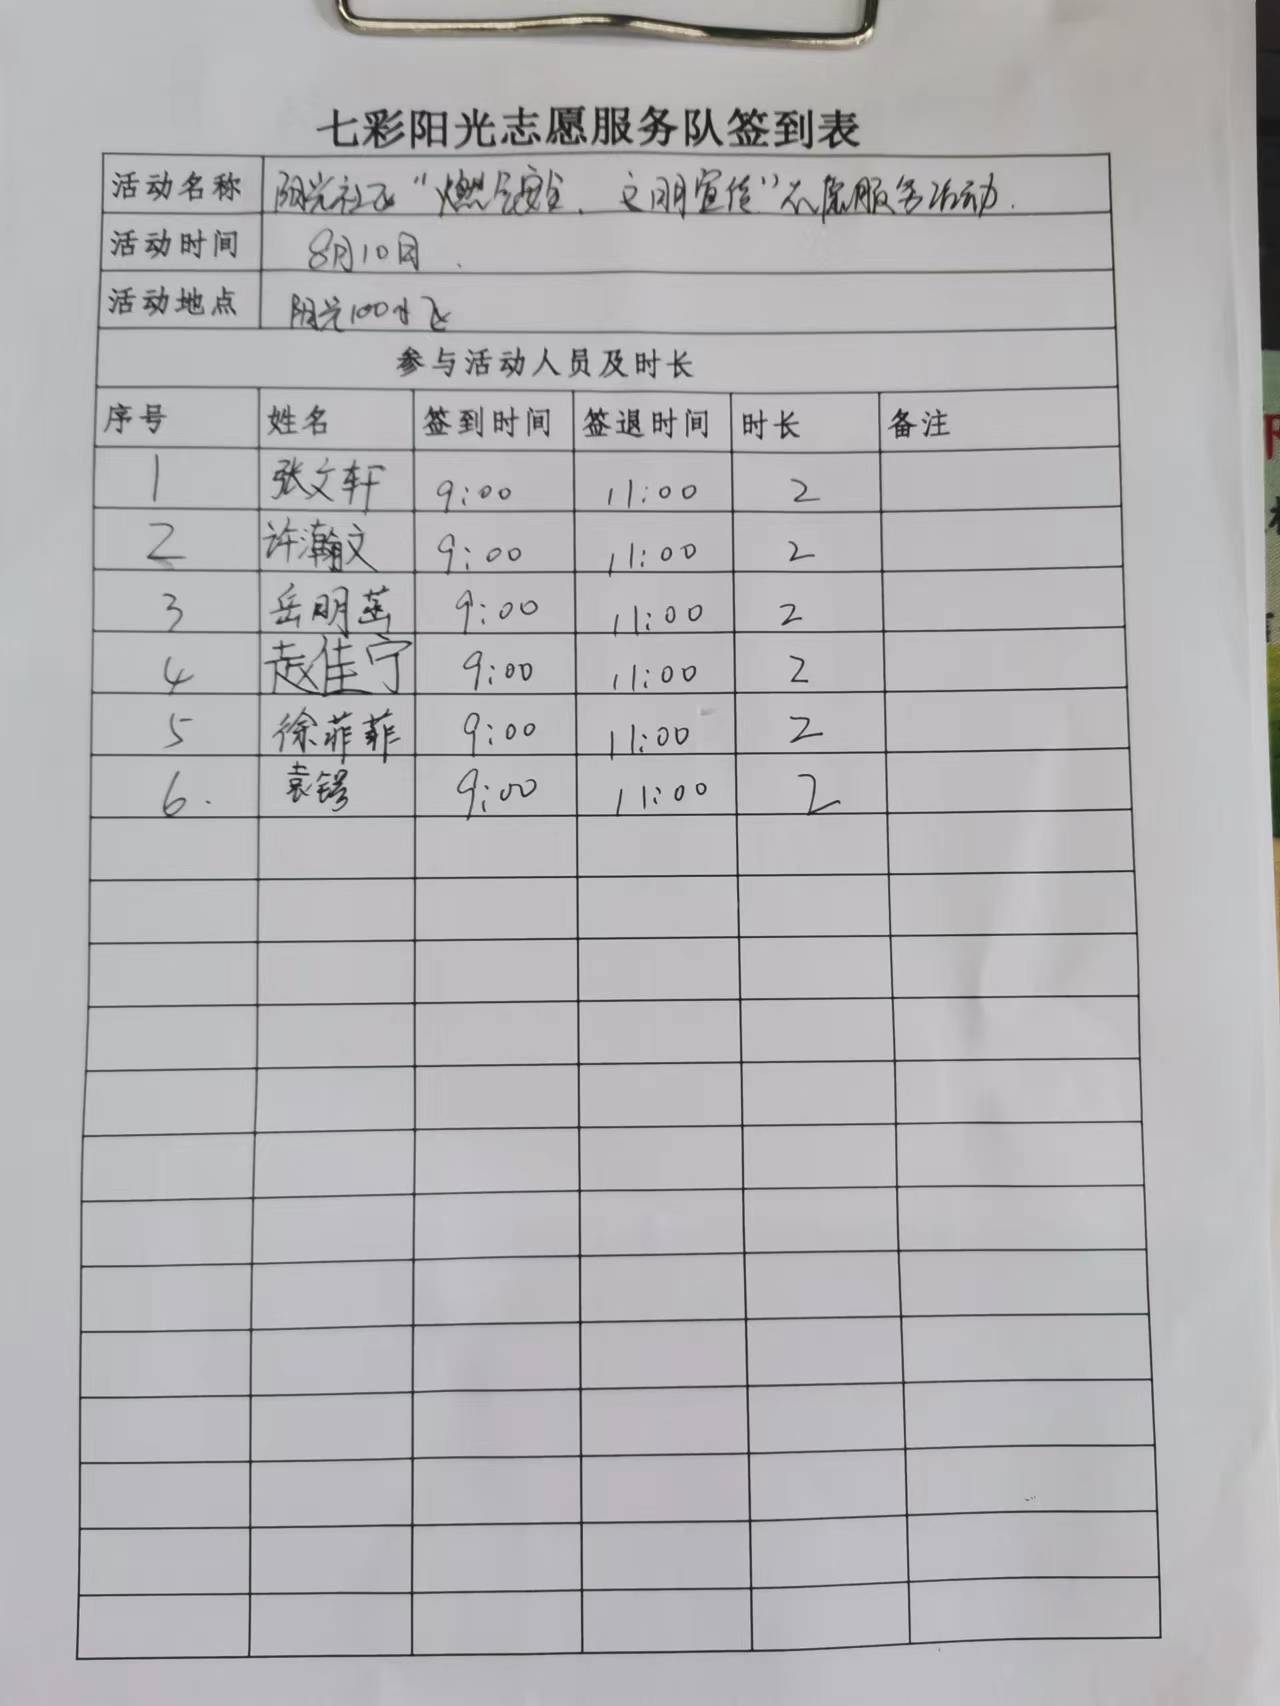 七彩阳光志愿服务队签到表
活动名称 阳光社区“燃气安全、文明宣传”志愿服务活动.
活动时间 8月10日.
活动地点 阳光100小区
参与活动人员及时长
序号 姓名 签到时间 签退时间 时长 备注
1 张文轩 9:00 11:00 2
2 许瀚文 9:00 11:00 2
3 岳明 9:00 11:00 2
4 赵佳宁 9:00 11:00 2
5 徐菲菲 9:00 11:00 2
6. 袁 9:00 11:00 2